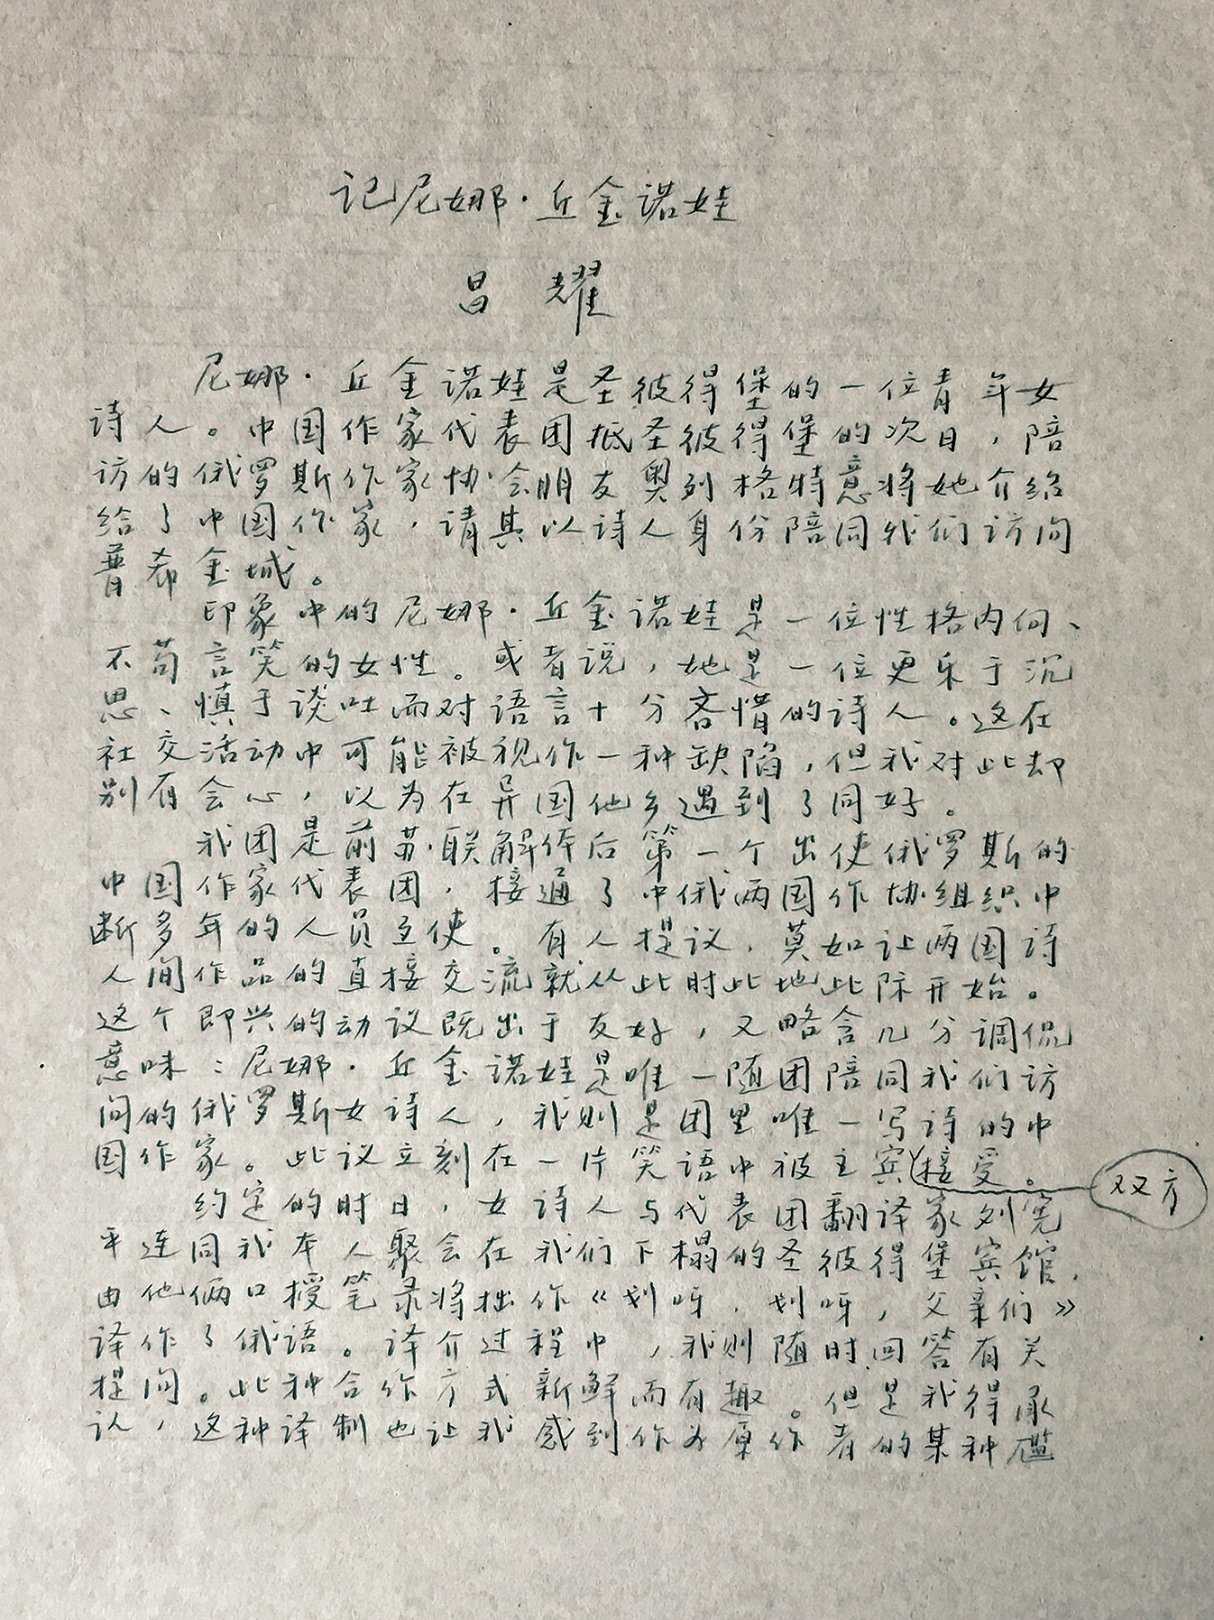 记尼娜·丘金诺娃
昌耀
尼娜·丘金诺娃是圣彼得堡的一位青年女
诗人。中国作家代表团抵圣彼得堡的次日，陪
访的俄罗斯作家协会朋友奥列格特意将她介绍
给了中国作家，请其以诗人身份陪同我们访问
普希金城。
印象中的尼娜·丘金诺娃是一位性格内向、
不苟言笑的女性。或者说，她是一位更乐于沉
思、慎于谈吐而对语言十分吝惜的诗人。这在
社交活动中可能被视作一种缺陷，但我对此却
别有会心，以为在异国他乡遇到了同好。
我团是前苏联解体后第一个出使俄罗斯的
中国作家代表团，接通了中俄两国作协组织中
断多年的人员互使。有人提议，莫如让两国诗
人间作品的直接交流就从此时此地此际开始。
这个即兴的动议既出于友好，又略含几分调侃
意味：尼娜·丘金诺娃是唯一随团陪同我们访
问的俄罗斯女诗人，我则是团里唯一写诗的中
国作家。此议立刻在一片笑语中被主宾接受。
双方
约定的时日，女诗人与代表团翻译家刘宪
平连同我本人聚会在我们下榻的圣彼得堡宾馆，
由他俩口授笔录将拙作《划呀，划呀，父亲们》
译作了俄语。译介过程中，我则随时回答有关
提问。此种合作方式新鲜而有趣。但是我得承
认，这种译制也让我感到作为原作者的某种尴